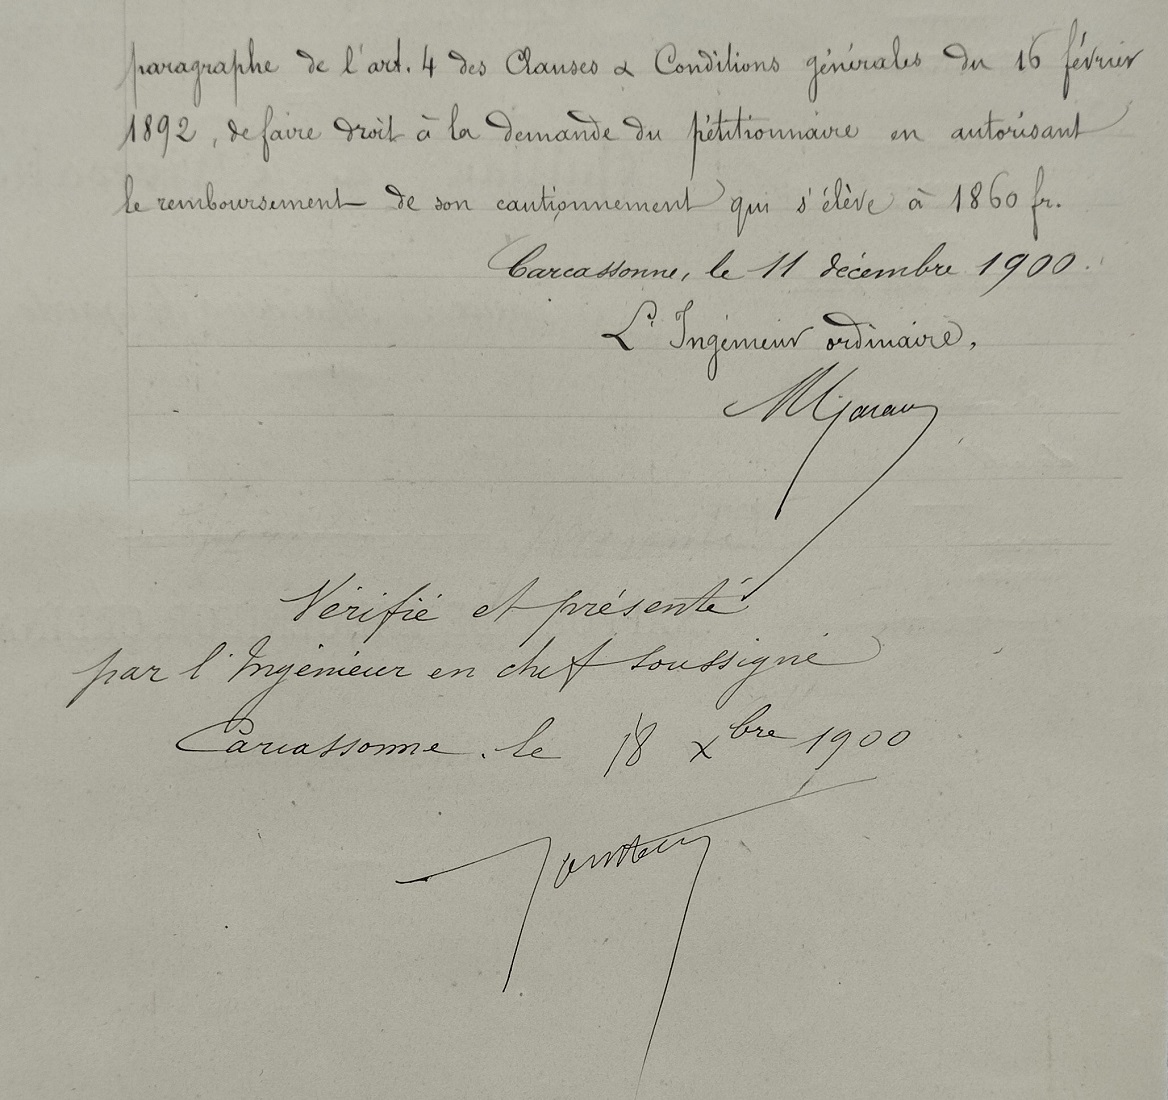 paragraphe de l'art. 4 des Clauses & Conditions générales du 16 février
1892, de faire droit à la demande du pétitionnaire en autorisant
le remboursement de son cautionnement qui s'élève à 1860 fr.
Carcassonne, le 11 décembre 1900.
L'Ingénieur ordinaire,
Vérifié et présenté
par l'Ingénieur en chef soussigné
Carcassonne, le 18 Xbre 1900